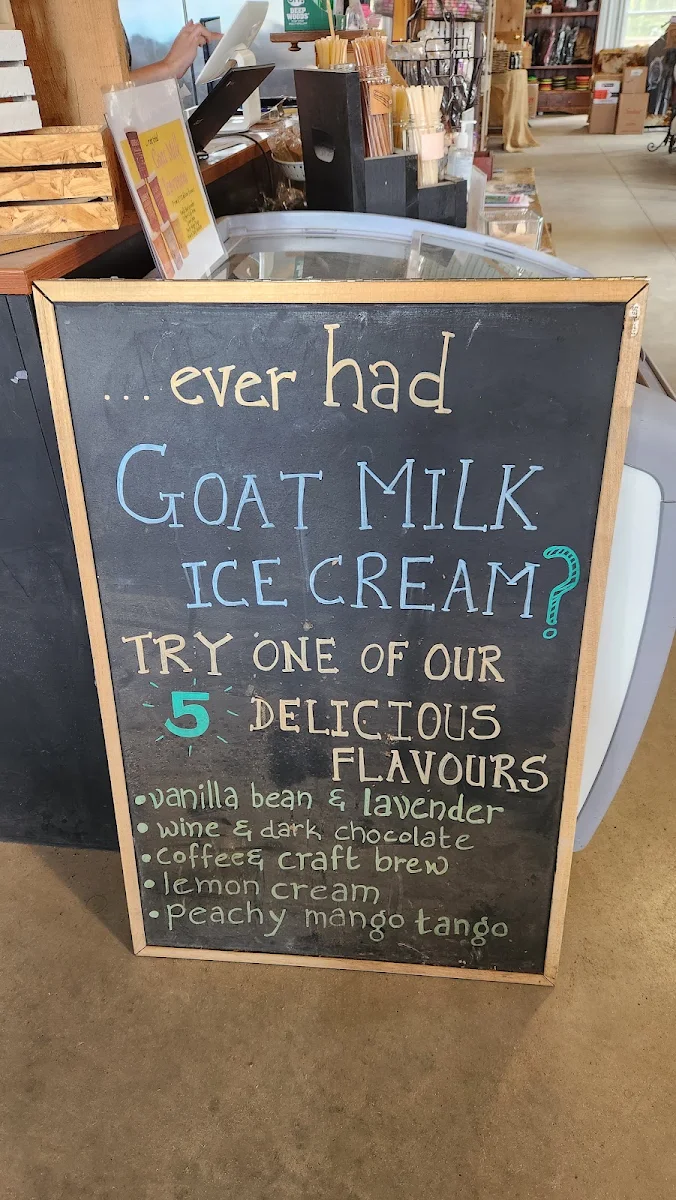 DEEP
WOODS
...ever had
GOAT MILK
ICE CREAM?
TRY ONE OF OUR
5 DELICIOUS
FLAVOURS
•vanilla bean & lavender
•wine & dark chocolate
•coffee& craft brew
•lemon cream
•peachy mango tango